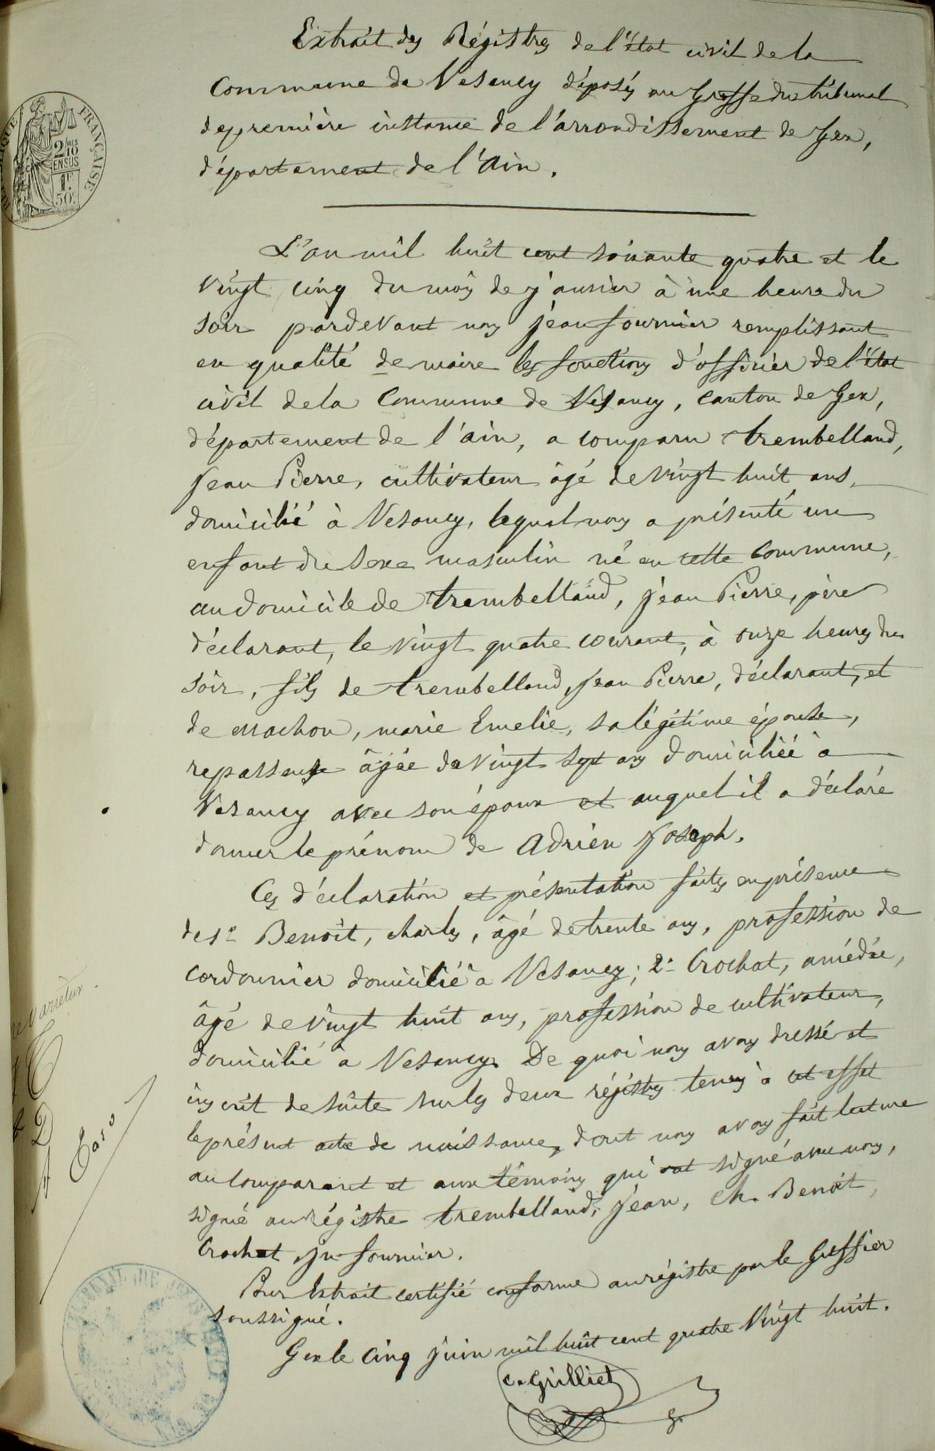 Extrait des Régistres de l'état civil de la
Commune de Vesancy déposés au Greffe du tribunal
de première instance de l'arrondissement de Gex,
département de l'Ain.
RÉPUBLIQUE FRANÇAISE
2/10 EN SUS
1F 50c
L'an mil huit cent soixante quatre et le
vingt cinq du mois de janvier à une heure du
soir pardevant nous Jean fournier remplissant
en qualité de maire les fonctions d'officier de l'état
civil de la Commune de Vesancy, canton de Gex,
département de l'ain, a comparu trembelland,
Jean Pierre, cultivateur âgé de vingt huit ans,
domicilié à Vesancy, lequel nous a présenté un
enfant du sexe masculin né en cette commune,
au domicile de trembelland, Jean Pierre, père
déclarant, le vingt quatre courant, à onze heures du
soir, fils de trembelland, Jean Pierre, déclarant, et
de machon, marie Emelie, sa légitime épouse,
repasseuse âgée de vingt sept ans domiciliée à
Vesancy avec son époux et auquel il a déclaré
donner le prénom de Adrien Joseph.
Ces déclaration et présentation faites en présence
de 1° Benoît, charles, âgé de trente ans, profession de
cordonnier domicilié à Vesancy; 2° Crochat, amédée,
âgé de vingt huit ans, profession de cultivateur,
domicilié à Vesancy. De quoi nous avons dressé et
inscrit de suite sur les deux régistres tenus à cet effet
le présent acte de naissance, dont nous avons fait lecture
au comparant et aux témoins qui ont signé avec nous,
signé au régistre trembelland, Jean, Ch. Benoit,
Crochat, Jn fournier.
Pour Extrait certifié conforme au régistre par le Greffier
soussigné.
Gex le cinq juin mil huit cent quatre vingt huit.
C. Grilliet
ne varietur